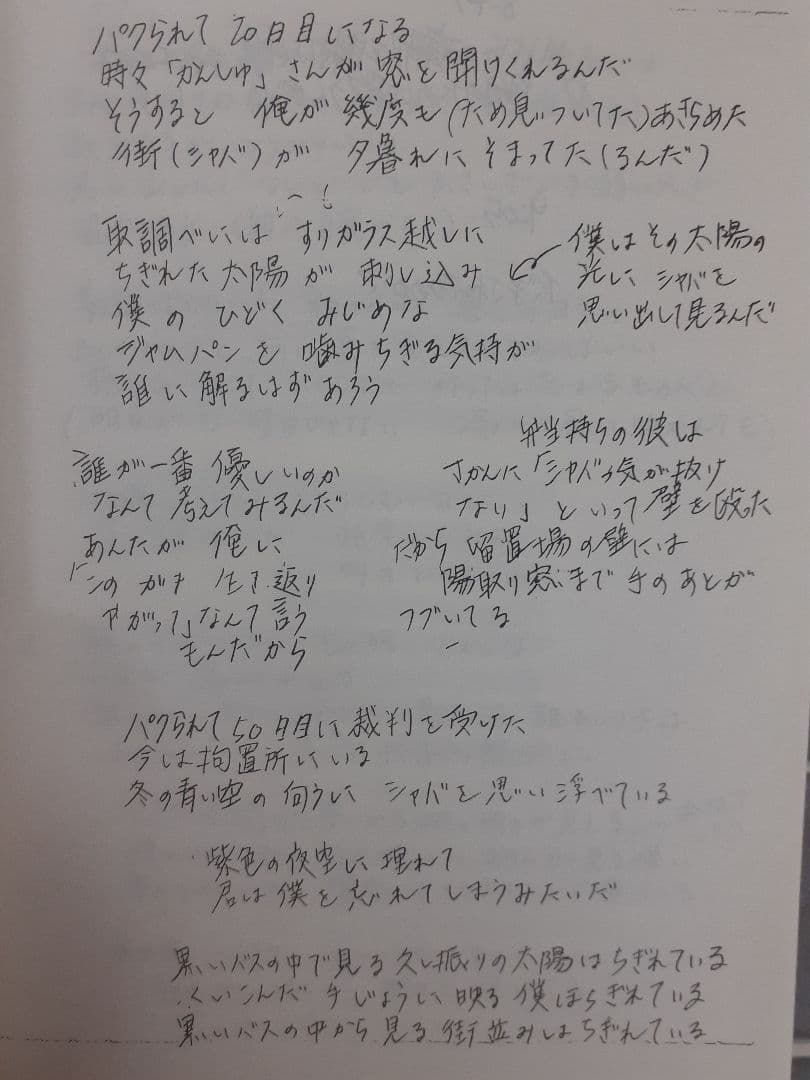 パクられて20日目になる
時々「かんしゅ」さんが窓を開けくれるんだ
そうすると 俺が幾度も(ため息ついてた)あきらめた
街(シャバ)が 夕暮れにそまってた(るんだ)
取調べには すりガラス越しに
ちぎれた太陽が 刺し込み
僕の ひどく みじめな
ジャムパンを 噛みちぎる気持が
誰に解るはずあろう
僕はその太陽の
光に シャバを
思い出して見るんだ
誰が一番 優しいのか
なんて 考えてみるんだ
あんたが 俺に
生き返り
がって」なんて言う
もんだから
弁当持ちの彼は
さかんに「シャバっ気が抜け
ない」といって壁を殴った
だから 留置場の壁には
陽取り窓まで 手のあとが
つづいてる
パクられて50日目に裁判を受けた
今は拘置所にいる
冬の青い空の向うに シャバを思い浮べている
紫色の夜空に 埋れて
君は僕を忘れてしまうみたいだ
黒いバスの中で見る 久し振りの太陽はちぎれている
くいこんだ 手じょうに映る 僕はちぎれている
黒いバスの中から見る 街並みはちぎれている